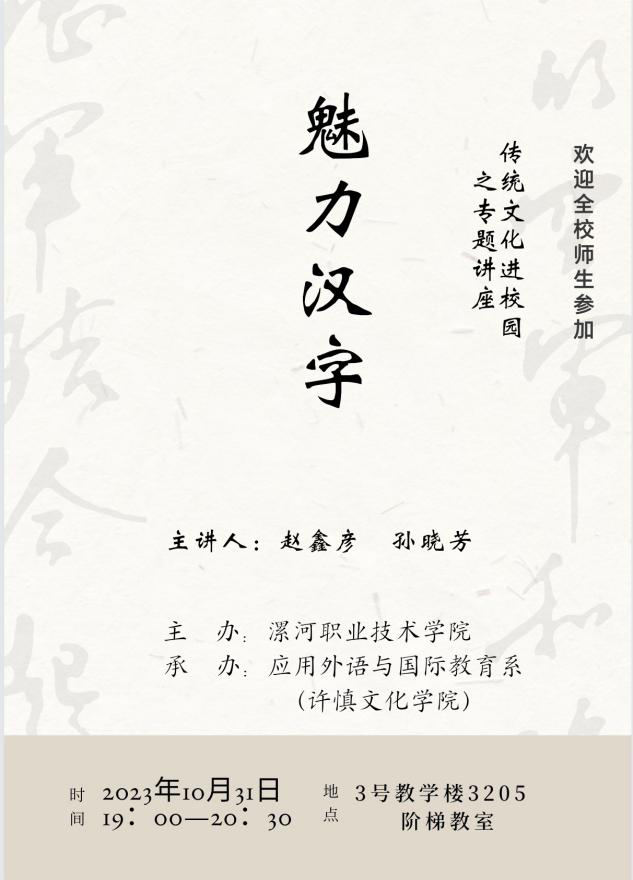 欢迎全校师生参加
传统文化进校园
之专题讲座
魅力汉字
主讲人：赵鑫彦 孙晓芳
主 办：漯河职业技术学院
承 办：应用外语与国际教育系
（许慎文化学院）
时间
2023年10月31日
19：00—20：30
地点
3号教学楼3205
阶梯教室